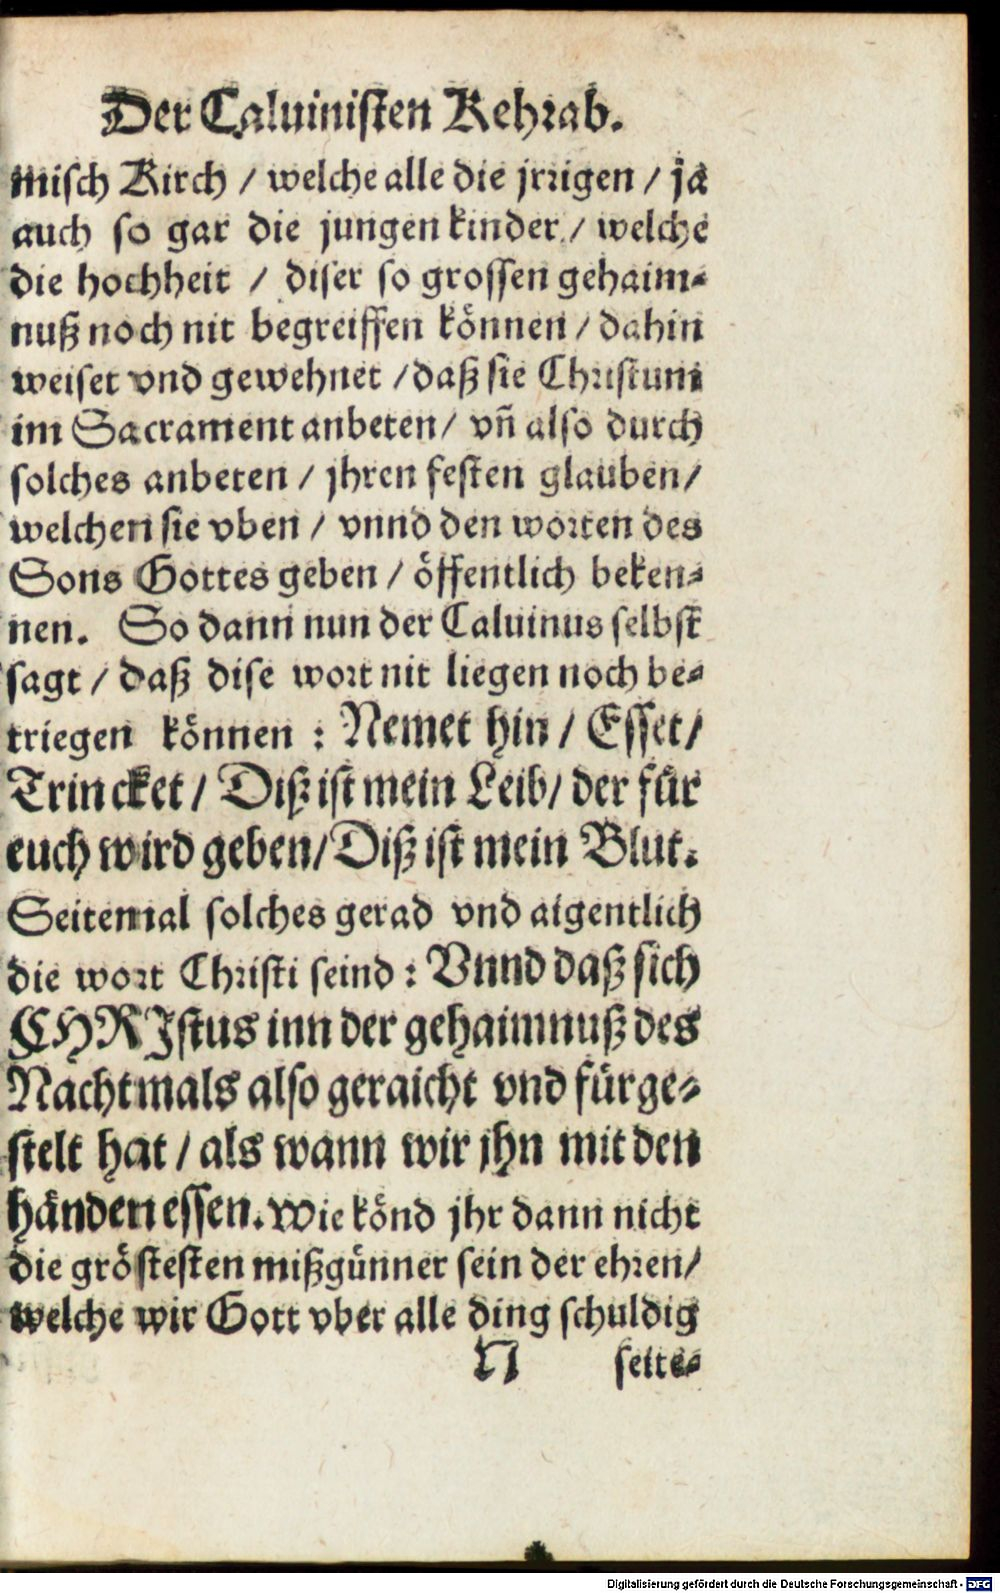 Der Caluinisten Kehrab.
misch Kirch / welche alle die jrrigen / ja
auch so gar die jungen kinder / welche
die hochheit / diser so grossen gehaim-
nuß noch nit begreiffen können / dahin
weiset vnd gewehnet / daß sie Christum
im Sacrament anbeten / vñ also durch
solches anbeten / jhren festen glauben /
welchen sie vben / vnnd den worten des
Sons Gottes geben / öffentlich beken-
nen. So dann nun der Caluinus selbst
sagt / daß dise wort nit liegen noch be-
triegen können : Nemet hin / Esset /
Trincket / Diß ist mein Leib / der für
euch wird geben / Diß ist mein Blut.
Seitemal solches gerad vnd aigentlich
die wort Christi seind : Vnnd daß sich
CHRIstus inn der gehaimnuß des
Nachtmals also geraicht vnd fürge-
stelt hat / als wann wir jhn mit den
händen essen. Wie könd jhr dann nicht
die gröstesten mißgünner sein der ehren /
welche wir Gott vber alle ding schuldig
N seite-
Digitalisierung gefördert durch die Deutsche Forschungsgemeinschaft - DFG